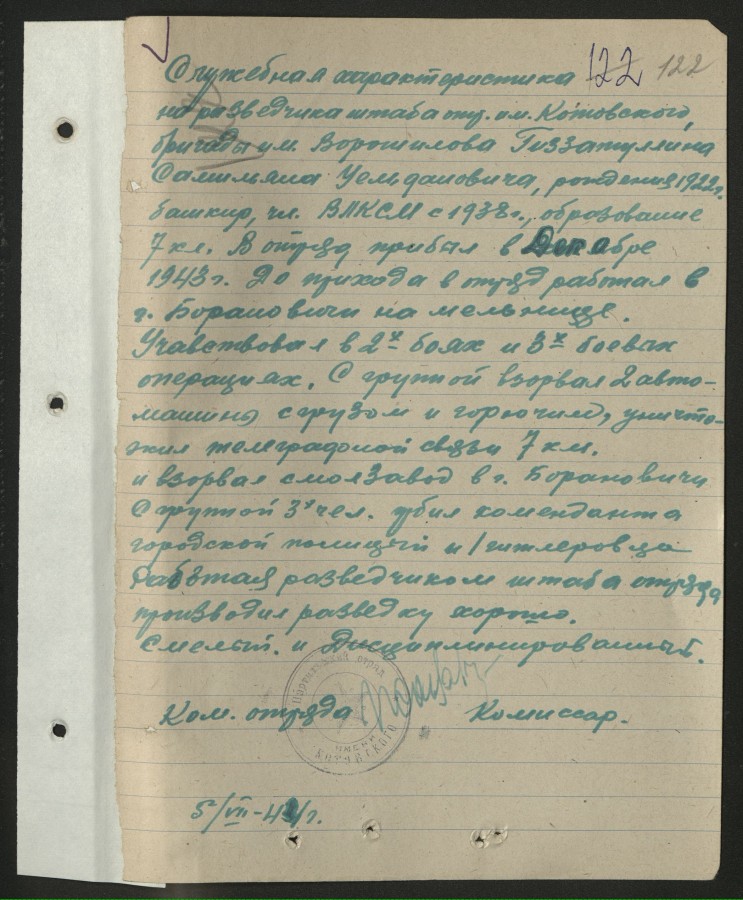 122 122
Служебная характеристика
на разведчика штаба отр. им. Котовского,
бригады им. Ворошилова Гиззатуллина
Самильяна Уельдановича, рождения 1922г.
башкир, чл. ВЛКСМ с 1938г., образование
7 кл. В отряд прибыл в Декабре
1943г. До прихода в отряд работал в
г. Борановичи на мельнице.
Учавствовал в 2х боях и 3х боевых
операциях. С группой взорвал 2 авто-
машины с грузом и горючим, уничто-
жил телеграфной связи 7 км.
и взорвал смолзавод в г. Борановичи
С группой 3х чел. убил коменданта
городской полиции и 1 гитлеровца
Работая разведчиком штаба отряда
производил разведку хорошо.
Смелый и Дисциплинированный.
Партизанский отряд
Ком. отряда Комиссар.
имени
Котовского
5/VII-44г.